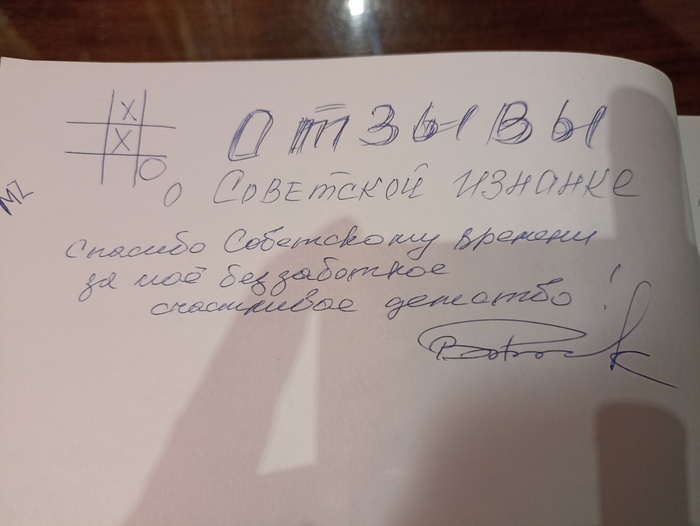 X
X
O
ОТЗЫВЫ
О СОВЕТСКОЙ ИЗНАНКЕ
Спасибо Советскому времени
за моё беззаботное
счастливое детство!